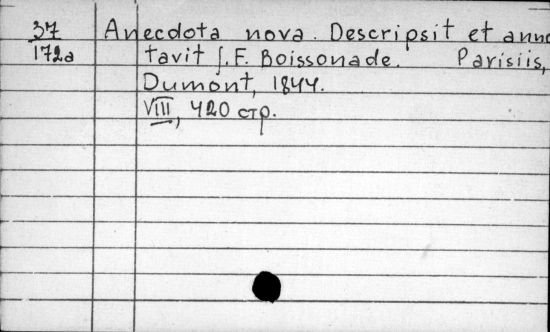 37 Anecdota nova. Descripsit et anno
172a tavit J. F. Boissonade. Parisiis,
Dumont, 1844.
VIII, 420 стр.